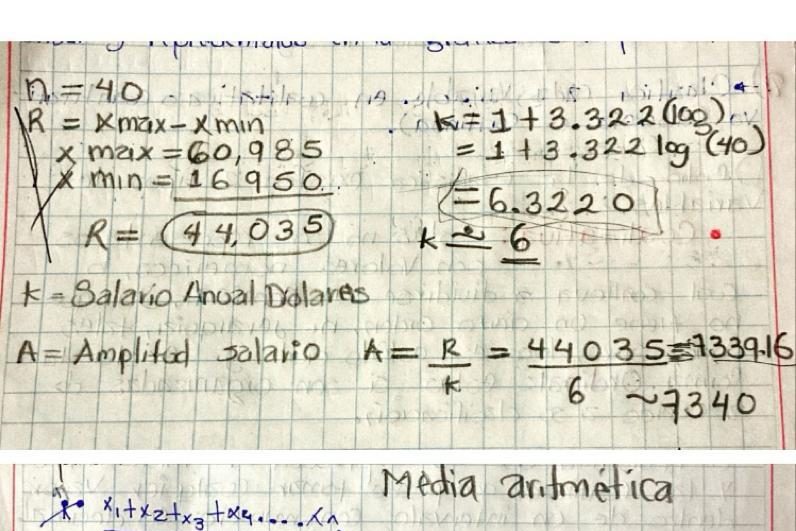 n = 40
R = xmax - xmin
x max = 60,985
x min = 16950
R = 44,035
k = 1 + 3.322 (log)
= 1 + 3.322 log (40)
= 6.3220
k ≃ 6
k = Salario Anual Dolares
A = Amplitud salario A = R/k = 44035/6 = 7339.16
~7340
Media aritmética
x1+x2+x3+x4....xn